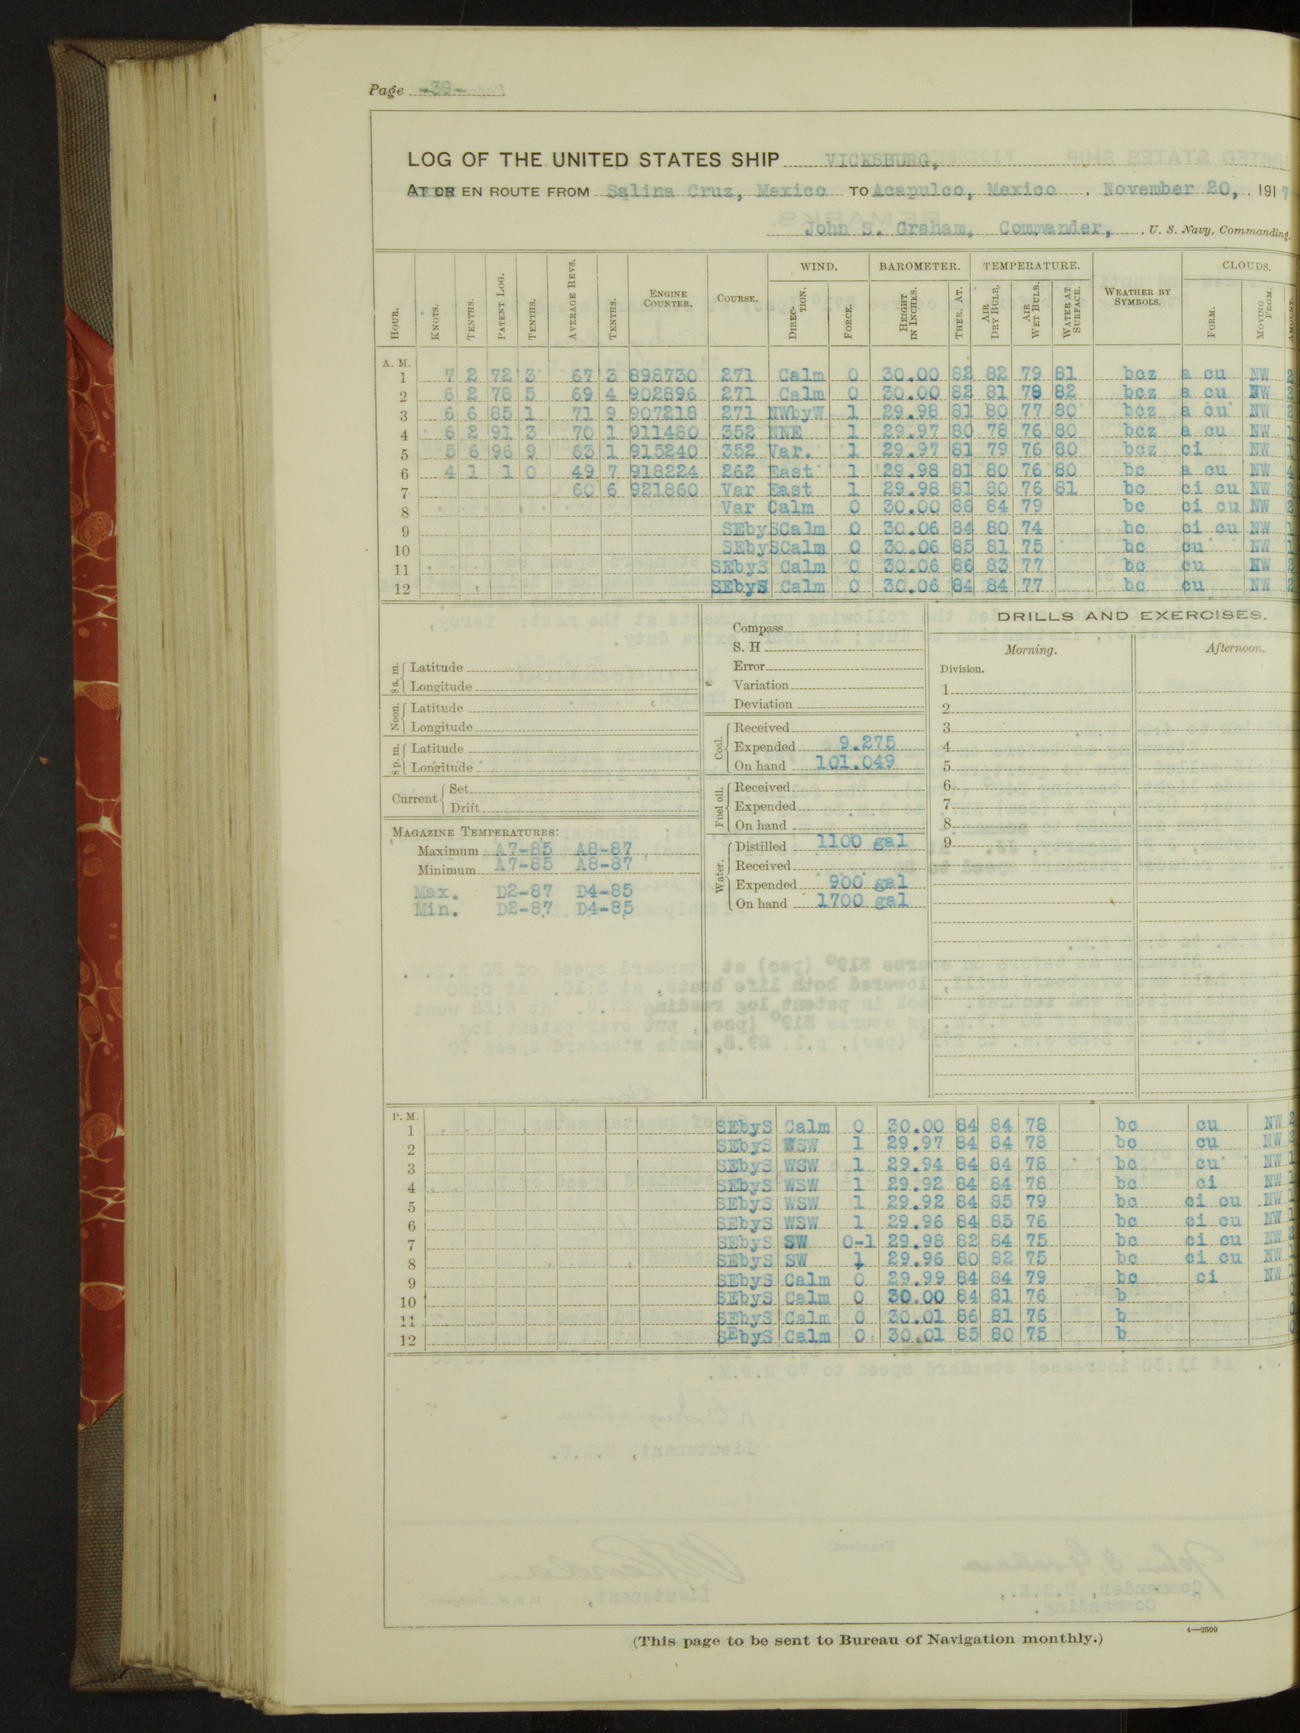 Page -39-
LOG OF THE UNITED STATES SHIP VICKSBURG,
AT OR EN ROUTE FROM Salina Cruz, Mexico TO Acapulco, Mexico , November 20, , 1917
John S. Graham, Commander, , U. S. Navy, Commanding.
HOUR. KNOTS. TENTHS. PATENT LOG. TENTHS. AVERAGE REVS. TENTHS. ENGINE COUNTER. COURSE. WIND. DIRECTION. FORCE. BAROMETER. HEIGHT IN INCHES. THER. AT. TEMPERATURE. AIR DRY BULB. AIR WET BULB. WATER AT SURFACE. WEATHER BY SYMBOLS. CLOUDS. FORM. MOVING FROM. AMOUNT
A. M.
1 7 2 72 3 67 3 898730 271 Calm 0 30.00 82 82 79 81 bcz a cu NW 2
2 6 2 78 5 69 4 902896 271 Calm 0 30.00 82 81 78 82 bcz a cu NW 2
3 6 6 85 1 71 9 907218 271 NWbyW 1 29.98 81 80 77 80 bcz a cu NW 2
4 6 2 91 3 70 1 911460 352 NNE 1 29.97 80 78 76 80 bcz a cu NW 1
5 5 6 96 9 63 1 915240 352 Var. 1 29.97 81 79 76 80 bcz ci NW 1
6 4 1 1 0 49 7 918224 262 East 1 29.98 81 80 76 80 bc a cu NW 4
7 60 6 921860 Var East 1 29.98 81 80 76 81 bc ci cu NW 2
8 Var Calm 0 30.00 86 84 79 bc ci cu NW 2
9 SEbyS Calm 0 30.06 84 80 74 bc ci cu NW 1
10 SEbyS Calm 0 30.06 85 81 75 bc cu NW 1
11 SEbyS Calm 0 30.06 86 83 77 bc cu NW 2
12 SEbyS Calm 0 30.06 84 84 77 bc cu NW 2
8 a. m. Latitude
Longitude
Noon. Latitude
Longitude
8 p. m. Latitude
Longitude
Current Set
Drift
MAGAZINE TEMPERATURES:
Maximum A7-85 A8-87
Minimum A7-85 A8-87
Max. D2-87 D4-85
Min. D2-87 D4-85
Compass
S. H
Error
Variation
Deviation
Coal. Received
Expended 9.275
On hand 101.049
Fuel oil. Received
Expended
On hand
Water. Distilled 1100 gal
Received
Expended 900 gal
On hand 1700 gal
DRILLS AND EXERCISES.
Morning. Afternoon.
Division.
1
2
3
4
5
6
7
8
9
P. M.
1 SEbyS Calm 0 30.00 84 84 78 bc cu NW 2
2 SEbyS WSW 1 29.97 84 84 78 bc cu NW 2
3 SEbyS WSW 1 29.94 84 84 78 bc cu NW 1
4 SEbyS WSW 1 29.92 84 84 78 bc ci NW 1
5 SEbyS WSW 1 29.92 84 85 79 bc ci cu NW 1
6 SEbyS WSW 1 29.96 84 85 76 bc ci cu NW 1
7 SEbyS SW 0-1 29.98 82 84 75 bc ci cu NW 2
8 SEbyS SW 1 29.96 80 82 75 bc ci cu NW 1
9 SEbyS Calm 0 29.99 84 84 79 bc ci NW 1
10 SEbyS Calm 0 30.00 84 81 76 b 0
11 SEbyS Calm 0 30.01 86 81 76 b 0
12 SEbyS Calm 0 30.01 85 80 75 b 0
(This page to be sent to Bureau of Navigation monthly.)
4—2599